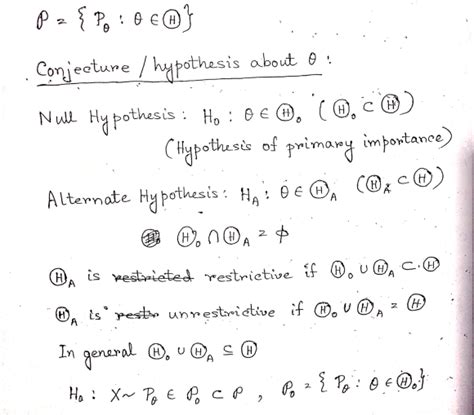 𝒫 = { P_θ : θ ∈ Ⓗ }
Conjecture / hypothesis about θ :
Null Hypothesis : H₀ : θ ∈ Ⓗ₀ ( Ⓗ₀ ⊂ Ⓗ )
(Hypothesis of primary importance)
Alternate Hypothesis : H_A : θ ∈ Ⓗ_A ( Ⓗ_A ⊂ Ⓗ )
Ⓗ₀ ∩ Ⓗ_A = ϕ
Ⓗ_A is ~~restricted~~ restrictive if Ⓗ₀ ∪ Ⓗ_A ⊂ Ⓗ
Ⓗ_A is ~~restr~~ unrestrictive if Ⓗ₀ ∪ Ⓗ_A = Ⓗ
In general Ⓗ₀ ∪ Ⓗ_A ⊆ Ⓗ
H₀ : X ~ P_θ ∈ 𝒫₀ ⊂ 𝒫 , 𝒫₀ = { P_θ : θ ∈ Ⓗ₀ }